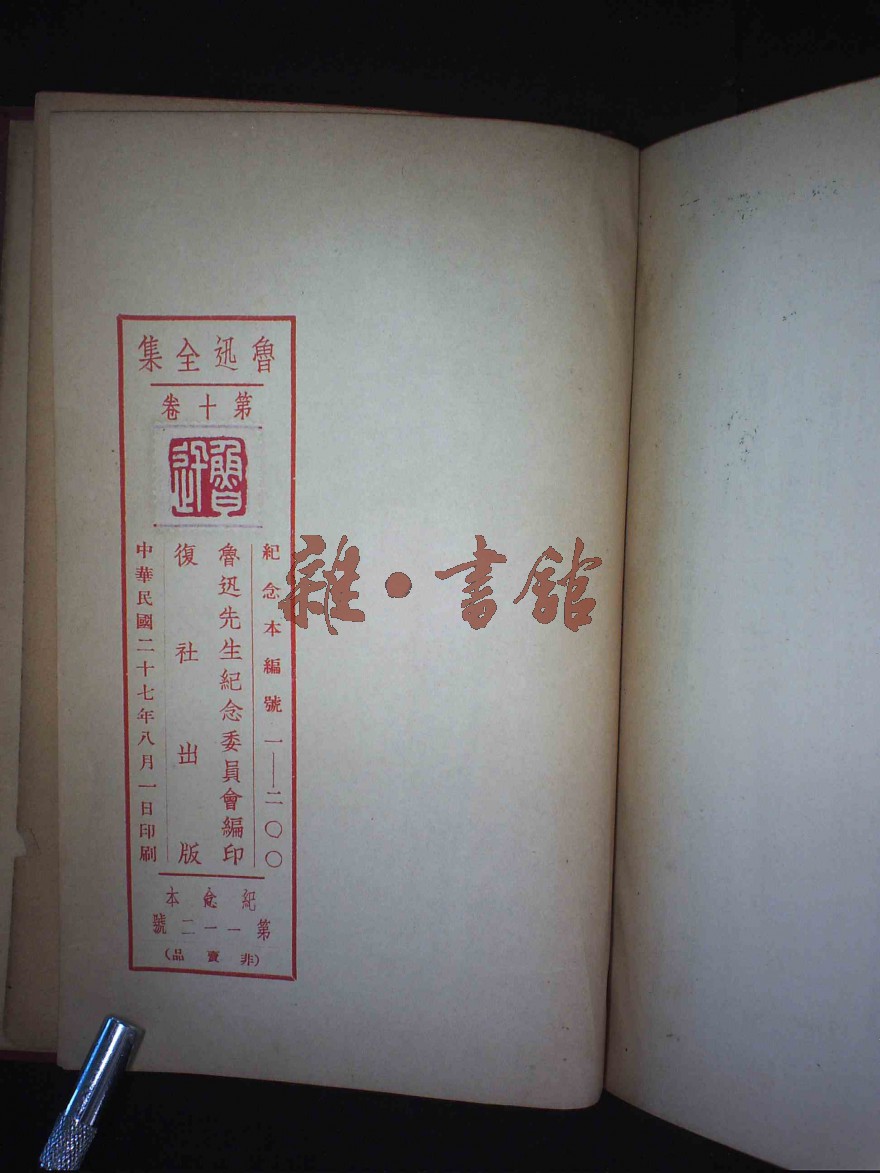 魯迅全集
第十卷
魯迅
紀念本編號一—二〇〇
魯迅先生紀念委員會編印
復社出版
中華民國二十七年八月一日印刷
紀念本
第一一二號
(非賣品)
雜·書館